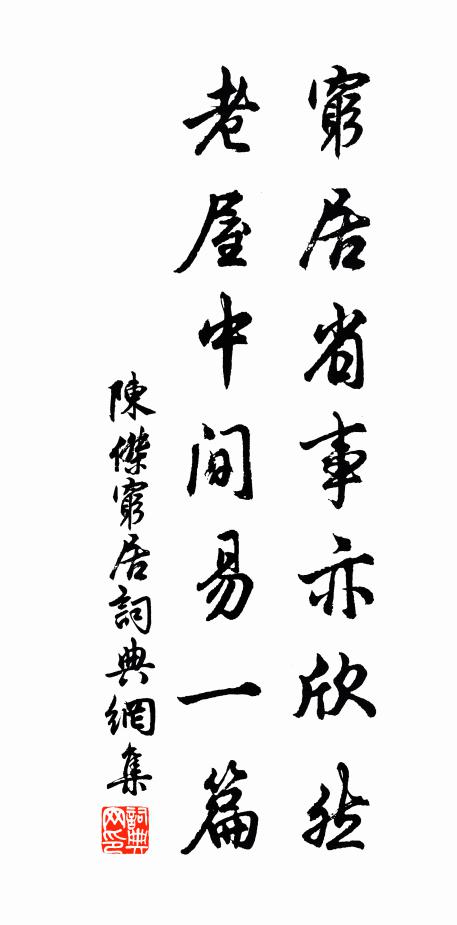 窮居省事亦欣然
老屋中間易一篇
陳傑窮居詞典網集
詞典网印